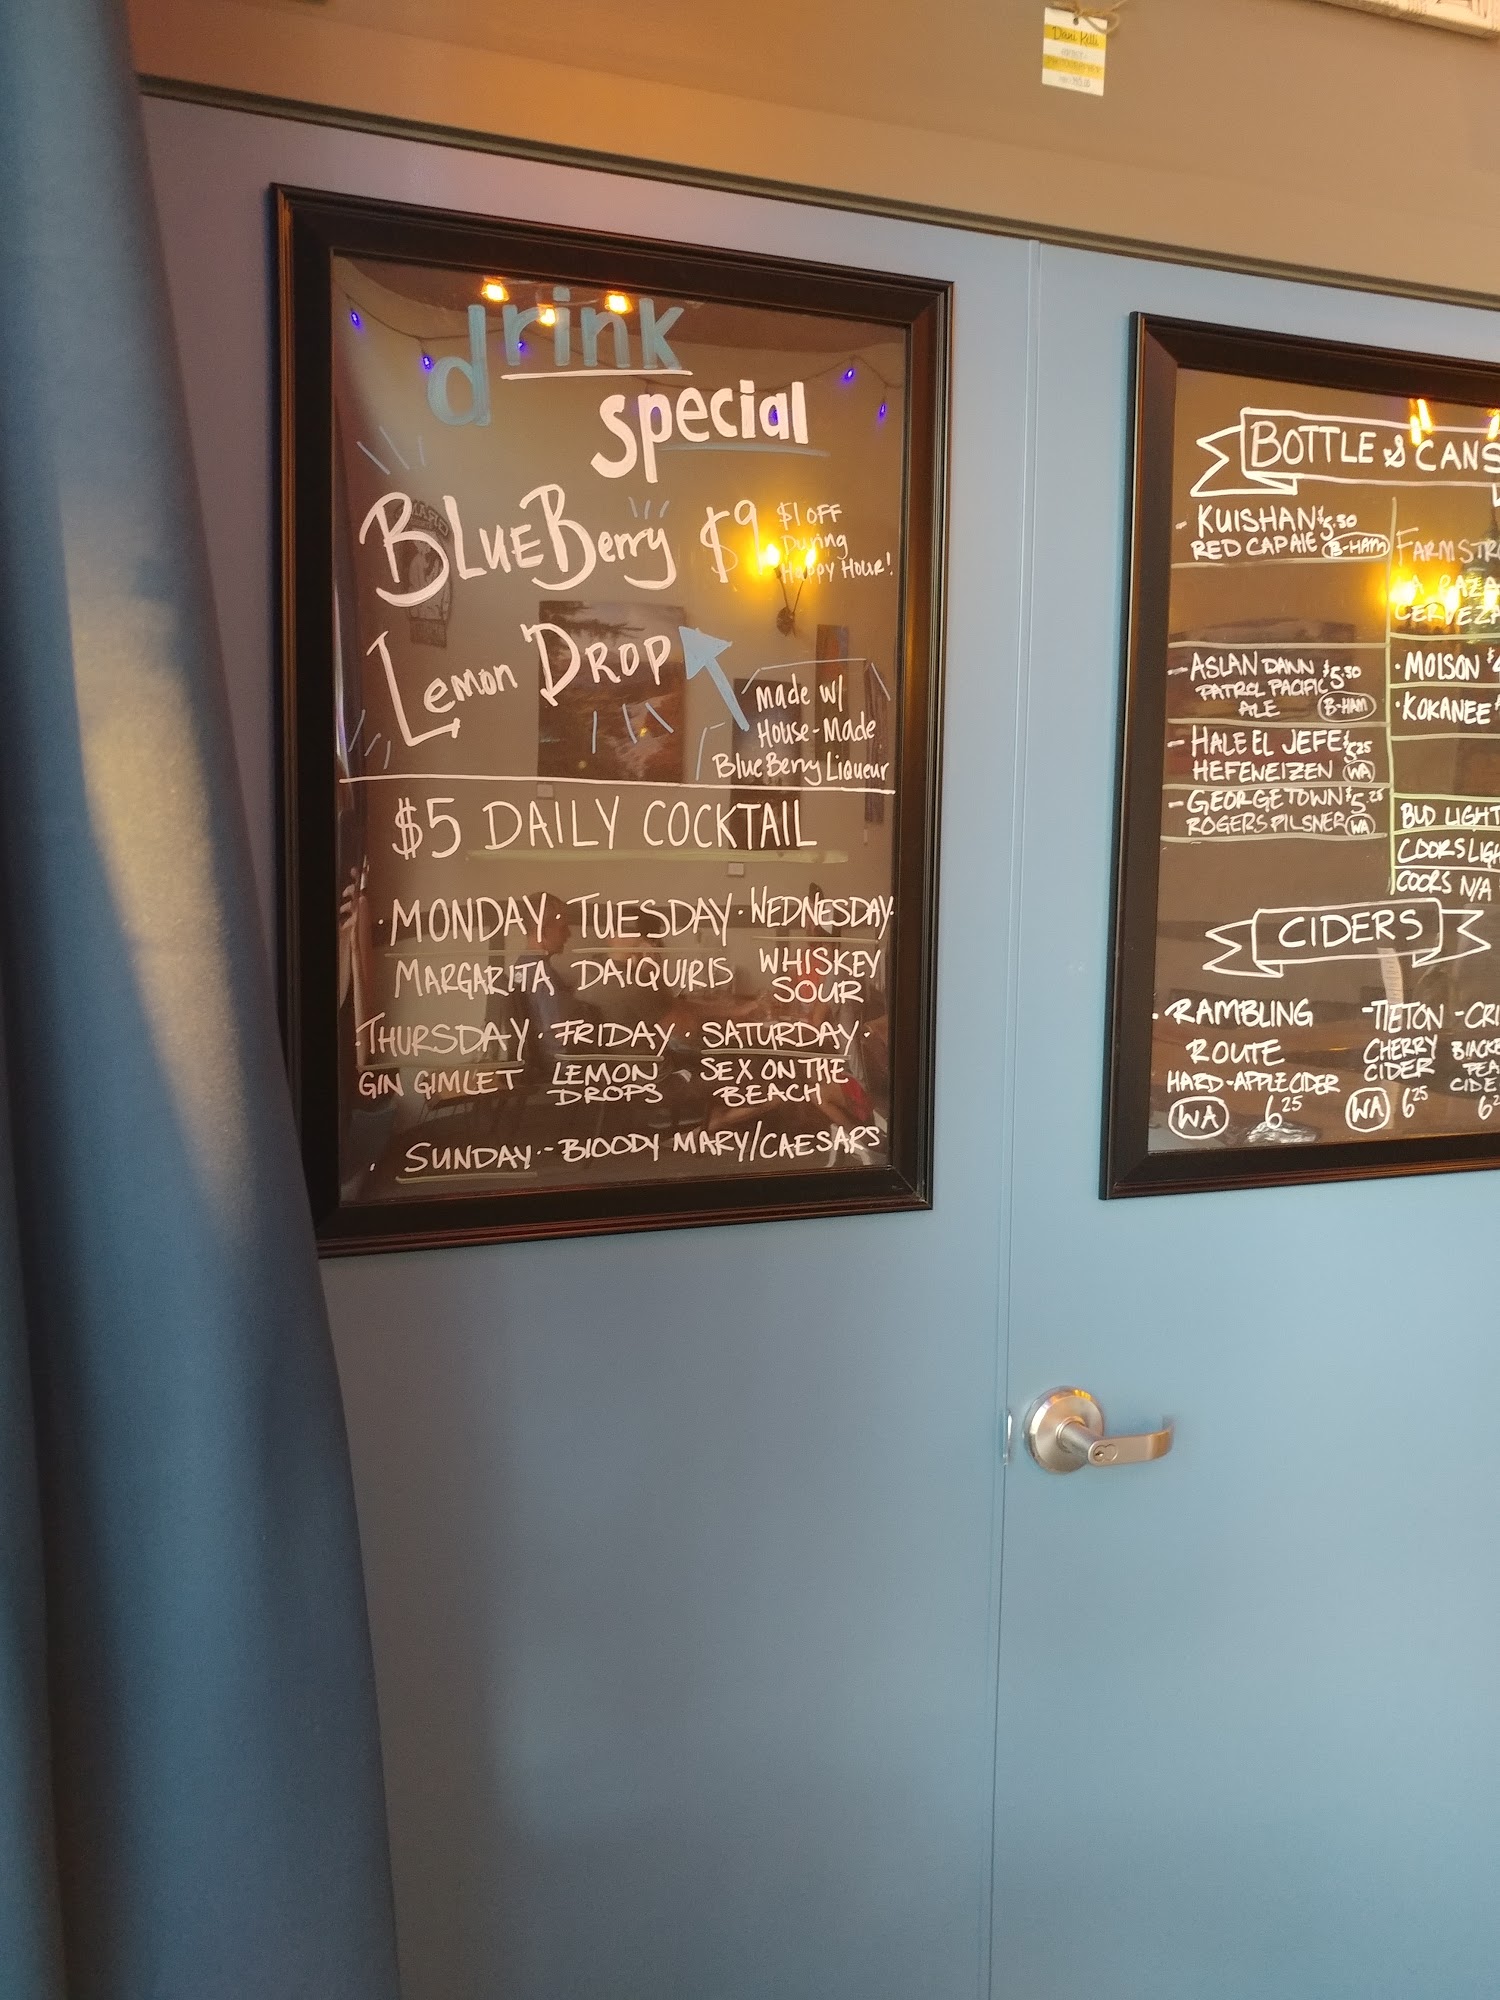 Dani Kelli
drink
special
BLUEBerry $9 $1 OFF
During
Happy Hour!
Lemon DROP
Made w/
House-Made
BlueBerry Liqueur
$5 DAILY COCKTAIL
· MONDAY · TUESDAY · WEDNESDAY ·
MARGARITA DAIQUIRIS WHISKEY
SOUR
· THURSDAY · FRIDAY · SATURDAY ·
GIN GIMLET LEMON SEX ON THE
DROPS BEACH
· SUNDAY - BLOODY MARY/CAESARS
BOTTLE & CANS
- KULSHAN $5.50
RED CAP ALE B-HAM
- ASLAN DAWN $5.50
PATROL PACIFIC
ALE B-HAM
- HALE EL JEFE $5.25
HEFEWEIZEN WA
- GEORGETOWN $5.25
ROGERS PILSNER WA
FARMSTR
LA PAZA
CERVEZA
· MOLSON $
· KOKANEE
BUD LIGHT
COORS LIGH
COORS N/A
CIDERS
· RAMBLING
ROUTE
HARD-APPLE CIDER
WA 6.25
- TIETON
CHERRY
CIDER
WA 6.25
- CRI
BLACKB
PEA
CIDE
6.2